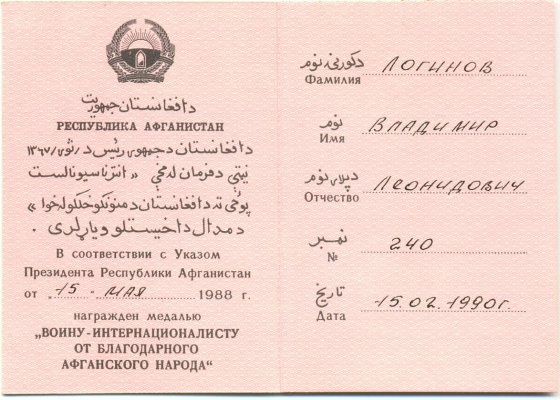 د افغانستان جمهوریت
РЕСПУБЛИКА АФГАНИСТАН
د افغانستان د جمهوری رئیس د ثوری ۱۳۶۷
نیټې د فرمان له مخې «انترناسیونالست
پوځي ته د افغانستان د منونکو خلکو له خوا»
د مدال د اخیستلو ویاړ لری.
В соответствии с Указом
Президента Республики Афганистан
от "15 - мая 1988 г.
награжден медалью
„ВОИНУ-ИНТЕРНАЦИОНАЛИСТУ
ОТ БЛАГОДАРНОГО
АФГАНСКОГО НАРОДА“
د کورنۍ نوم ЛОГИНОВ
Фамилия
نوم ВЛАДИМИР
Имя
د پلار نوم ЛЕОНИДОВИЧ
Отчество
نمبر 240
№
تاریخ 15.02.1990г.
Дата